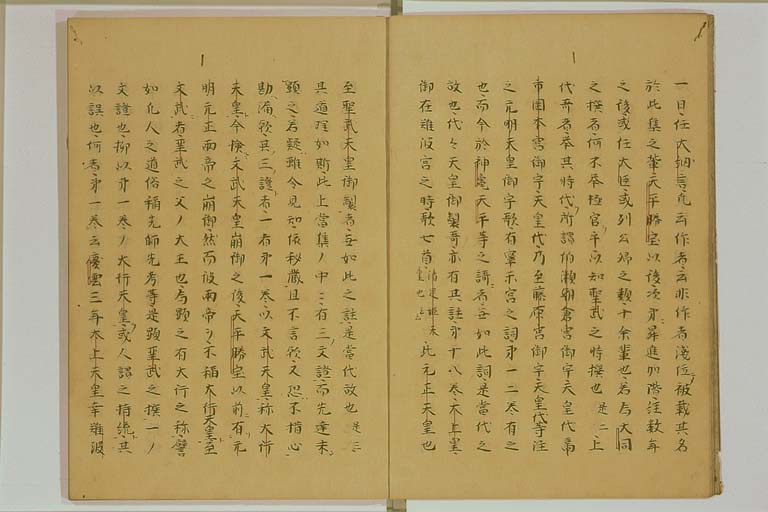 一日任大納言凡云作者云非作者淺位被載其名
於此集之輩天平勝宝以後次第昇進加階注数年
之後或任大臣或列公卿之類十余輩也若為大同
之撰者何不挙極官乎以知聖武之時撰也是二上
代哥者挙其時代所謂泊瀬朝倉宮御宇天皇代高
市岡本宮御宇天皇代乃至藤原宮御宇天皇代等注
之元明天皇御宇歌有寧楽宮之詞第一二巻有之
也而今於神亀天平等之謌者无如此詞是當代之
故也代々天皇御製哥亦有其註第十八巻太上皇
御在難波宮之時歌七首清足姫天皇也云々此元正天皇也
至聖武天皇御製者无如此之註是當代故也是三
具道理如斯此上當集ノ中ニ有三文證而先達未
顕之若疑雖今見知依秘蔵且不言欤又忽不揩心
勘漏欤其三證者一者第一巻以文武天皇称大行
天皇今撿文武天皇崩御之後天平勝宝以前有元
明元正両帝之崩御然而彼両帝ヲ不稱大行天皇至
文武者聖武之父ノ大王也為顕之有大行之称譬
如凡人之道俗稱先師先考等是顕聖武之撰一ノ
文證也抑以第一巻ノ大行天皇或人謂之持統其
以誤也何者第一巻云慶雲三年太上天皇幸難波